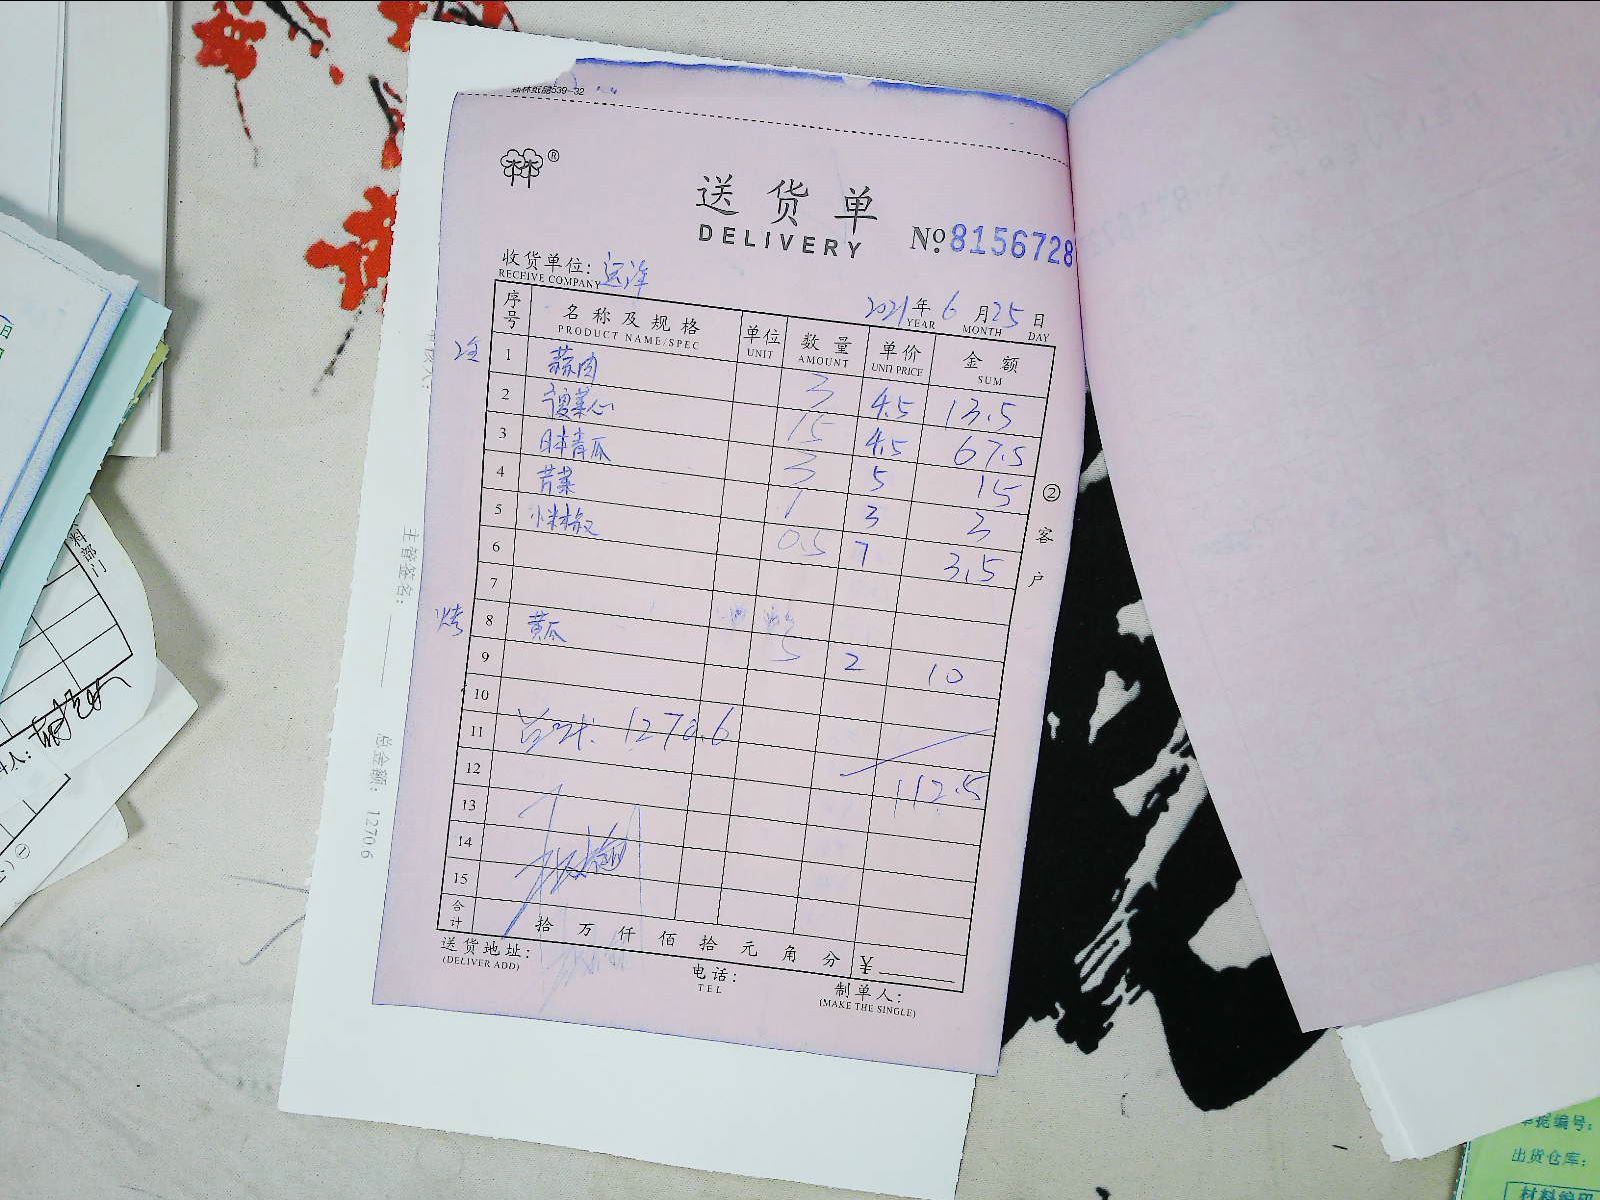 送货单
DELIVERY
No. 8156728
收货单位:
RECEIVE COMPANY
2021年6月25日
YEAR MONTH DAY
序号 名称及规格 单位 数量 单价 金额
PRODUCT NAME/SPEC UNIT AMOUNT UNIT PRICE SUM
1 蒜肉 3 4.5 13.5
2 菜心 15 4.5 67.5
3 日本青瓜 3 5 15
4 芹菜 1 3 3
5 小米椒 0.5 7 3.5
6
7
烤 8 黄瓜 5 2 10
9
10
11 总计: 1270.6
12 112.5
13
14
15
合计 拾 万 仟 佰 拾 元 角 分 ¥
送货地址:
(DELIVER ADD)
电话:
TEL
制单人:
(MAKE THE SINGLE)
② 客户
主管签名:
总金额: 1270.6
料部门
①
出货仓库: